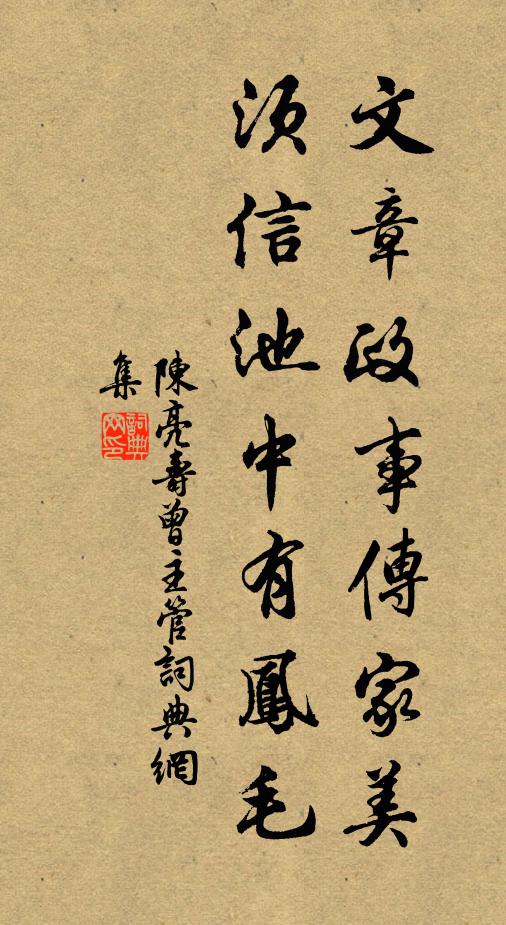 文章政事傳家美
須信池中有鳳毛
陳亮壽曾主管詞典網
集
詞典
网印